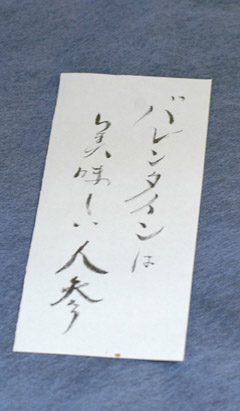 バレンタインは
美味しい人参